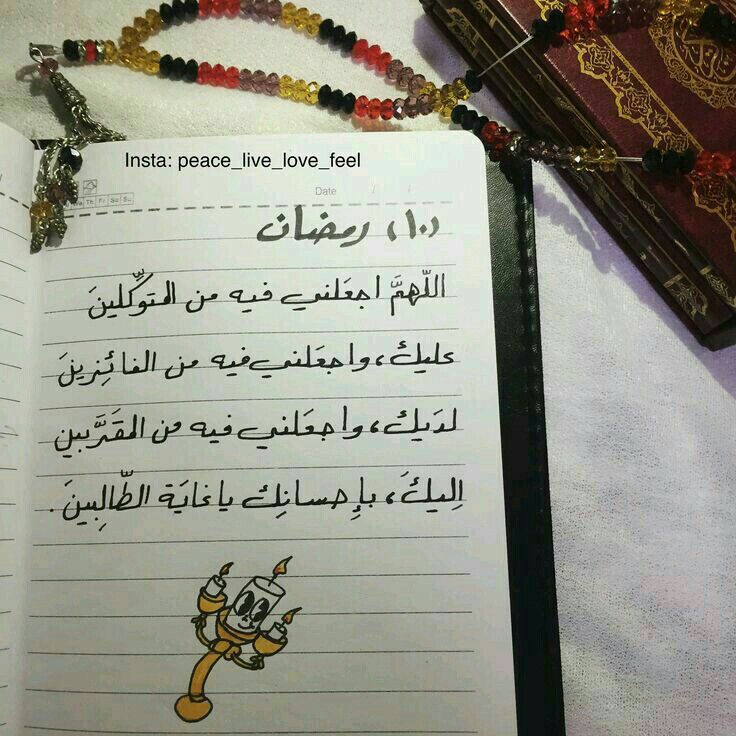 Insta: peace_live_love_feel
Date / /
Th Fr Sa Su
(١٠) رمضان
اللّهمَّ اجعَلني فيه من المتوكِّلينَ
عليكَ، واجعَلني فيه من الفائِزينَ
لدَيكَ، واجعَلني فيه من المقَرَّبين
اِليكَ، بإِحسانِكَ ياغايَة الطّالِبينَ.